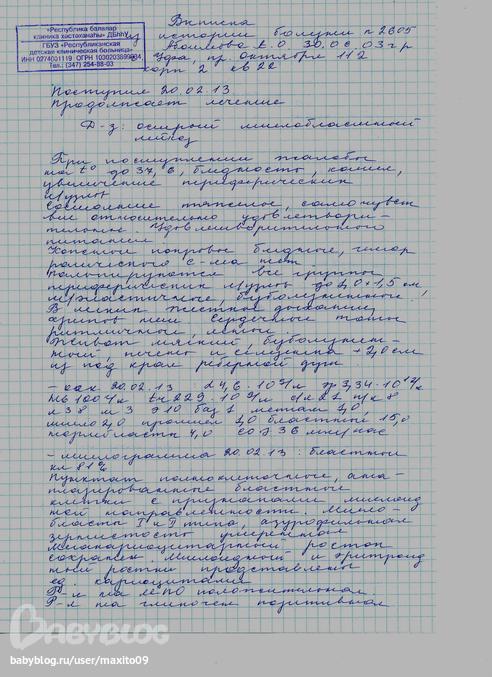 «Республика балалар
клиника хастаханаһы» ДБһҺУ
ГБУЗ «Республиканская
детская клиническая больница»
ИНН 0274001119 ОГРН
Тел.: (347) 254-88-03
Выписка
из истории болезни n 2605
30.06.03 г р
г Уфа, пр. Октября 112
корп 2 кв 22
Поступила 20.02.13
Продолжает лечение
Д-з: острый миелобластный
лейкоз
При поступлении жалобы
на t° до 37,6, бледность, кашель,
увеличение периферических
л/узлов
Состояние тяжелое, самочувст
вие относительно удовлетвори-
тельное. Удовлетворительного
питания.
Кожные покровы бледные, гемор
рагического с-ма нет.
Пальпируются все группы
периферических л/узлов до 1,0×1,5 см,
эластичные, безболезненные.
В легких жесткое дыхание,
хрипов нет. Сердечные тоны
ритмичные, ясные.
Живот мягкий, безболезнен-
ный, печень и селезенка +2,0 см
из под края реберной дуги.
- оак 20.02.13 эр 3,34·10¹²/л
Нв 100 г/л tr 229·10⁹/л п/я 8
л 38 м 3 э 10 баз 1 метам 1,0
миело 2,0 бластных 15,0
нормобласты 4,0 СОЭ 36 мм/час
- миелограмма 20.02.13: бластных
кл 81%
Пунктат полноклеточный,
бластные
клетки с признаками миелоид
ной направленности. Миело-
бласты I и II типа, азурофильная
зернистость умеренная
Мегакариоцитарный росток
сохранен. Миелоидный и эритроид
ный ростки представлены
ед. кариоцитами
Р-я на МПО положительная
Р-я на гликоген позитивная
BABYBLOG
babyblog.ru/user/maxito09